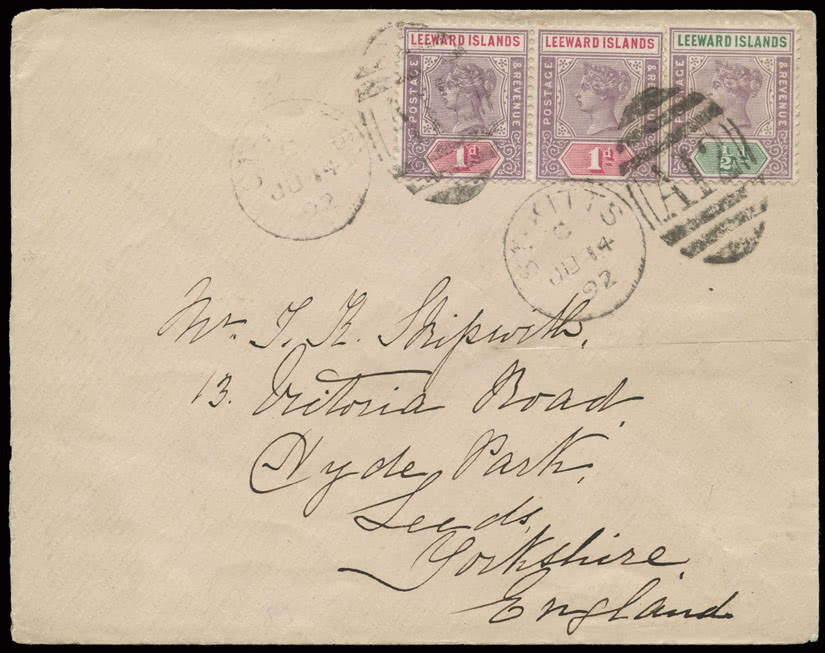 LEEWARD ISLANDS LEEWARD ISLANDS LEEWARD ISLANDS
POSTAGE & REVENUE POSTAGE & REVENUE POSTAGE & REVENUE
1d 1d ½d
JU 14
92
ST. KITTS
C
JU 14
92
Mr. T. K. Skipwith,
13. Victoria Road,
Hyde Park,
Leeds,
Yorkshire
England.